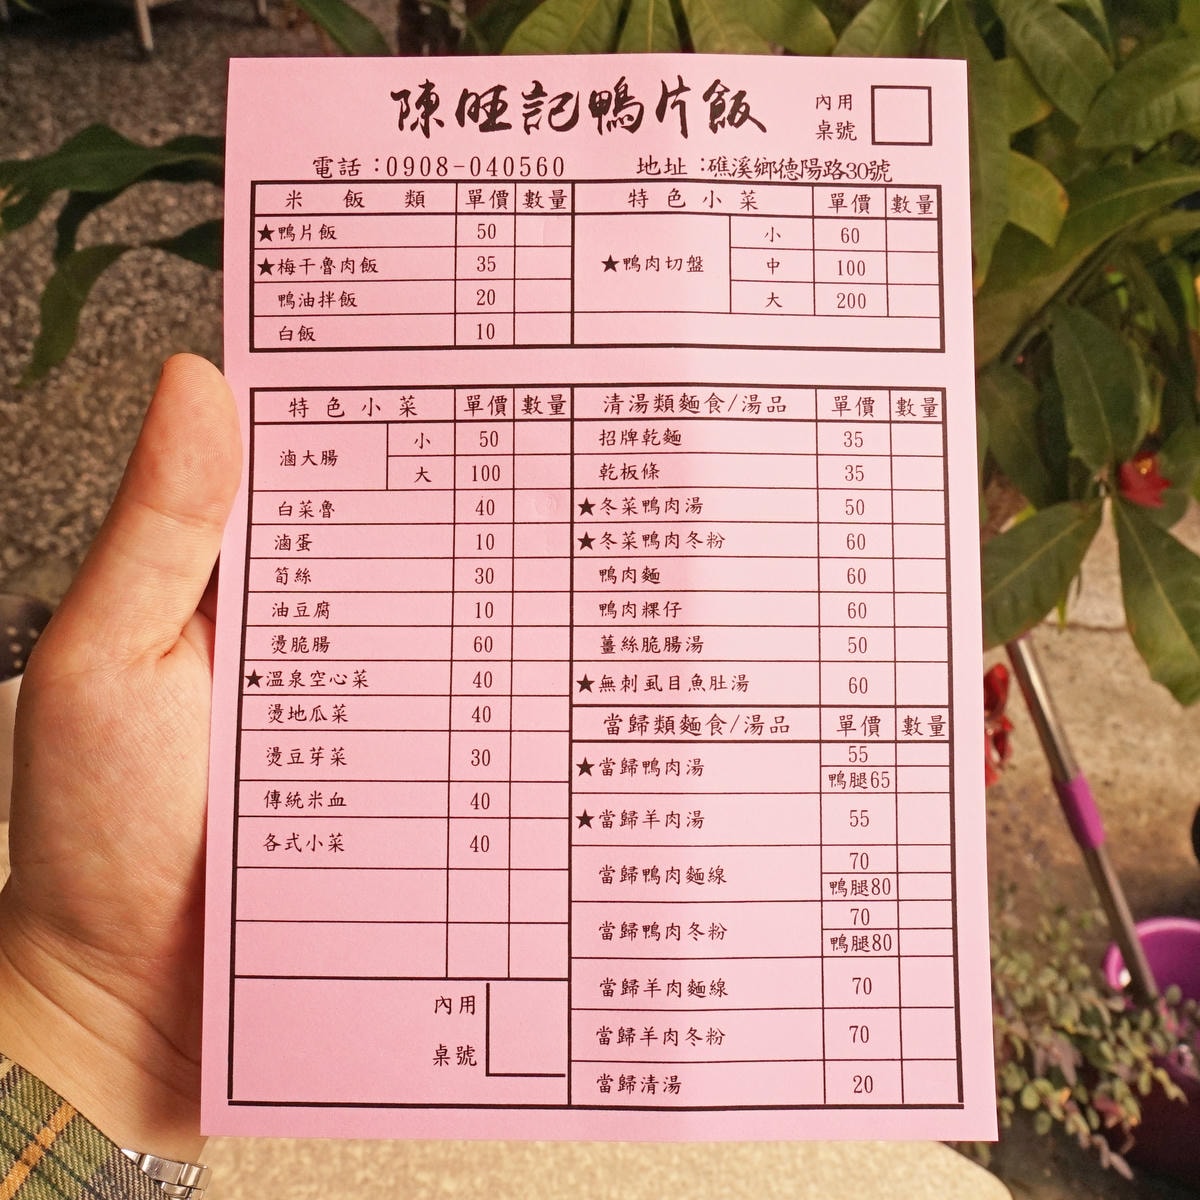 陳旺記鴨片飯
內用
桌號
電話：0908-040560 地址：礁溪鄉德陽路30號
米飯類 單價 數量
★鴨片飯 50
★梅干魯肉飯 35
鴨油拌飯 20
白飯 10
特色小菜 單價 數量
★鴨肉切盤
小 60
中 100
大 200
特色小菜 單價 數量
滷大腸
小 50
大 100
白菜魯 40
滷蛋 10
筍絲 30
油豆腐 10
燙脆腸 60
★溫泉空心菜 40
燙地瓜菜 40
燙豆芽菜 30
傳統米血 40
各式小菜 40
內用
桌號
清湯類麵食/湯品 單價 數量
招牌乾麵 35
乾板條 35
★冬菜鴨肉湯 50
★冬菜鴨肉冬粉 60
鴨肉麵 60
鴨肉粿仔 60
薑絲脆腸湯 50
★無刺虱目魚肚湯 60
當歸類麵食/湯品 單價 數量
★當歸鴨肉湯 55
鴨腿65
★當歸羊肉湯 55
當歸鴨肉麵線 70
鴨腿80
當歸鴨肉冬粉 70
鴨腿80
當歸羊肉麵線 70
當歸羊肉冬粉 70
當歸清湯 20